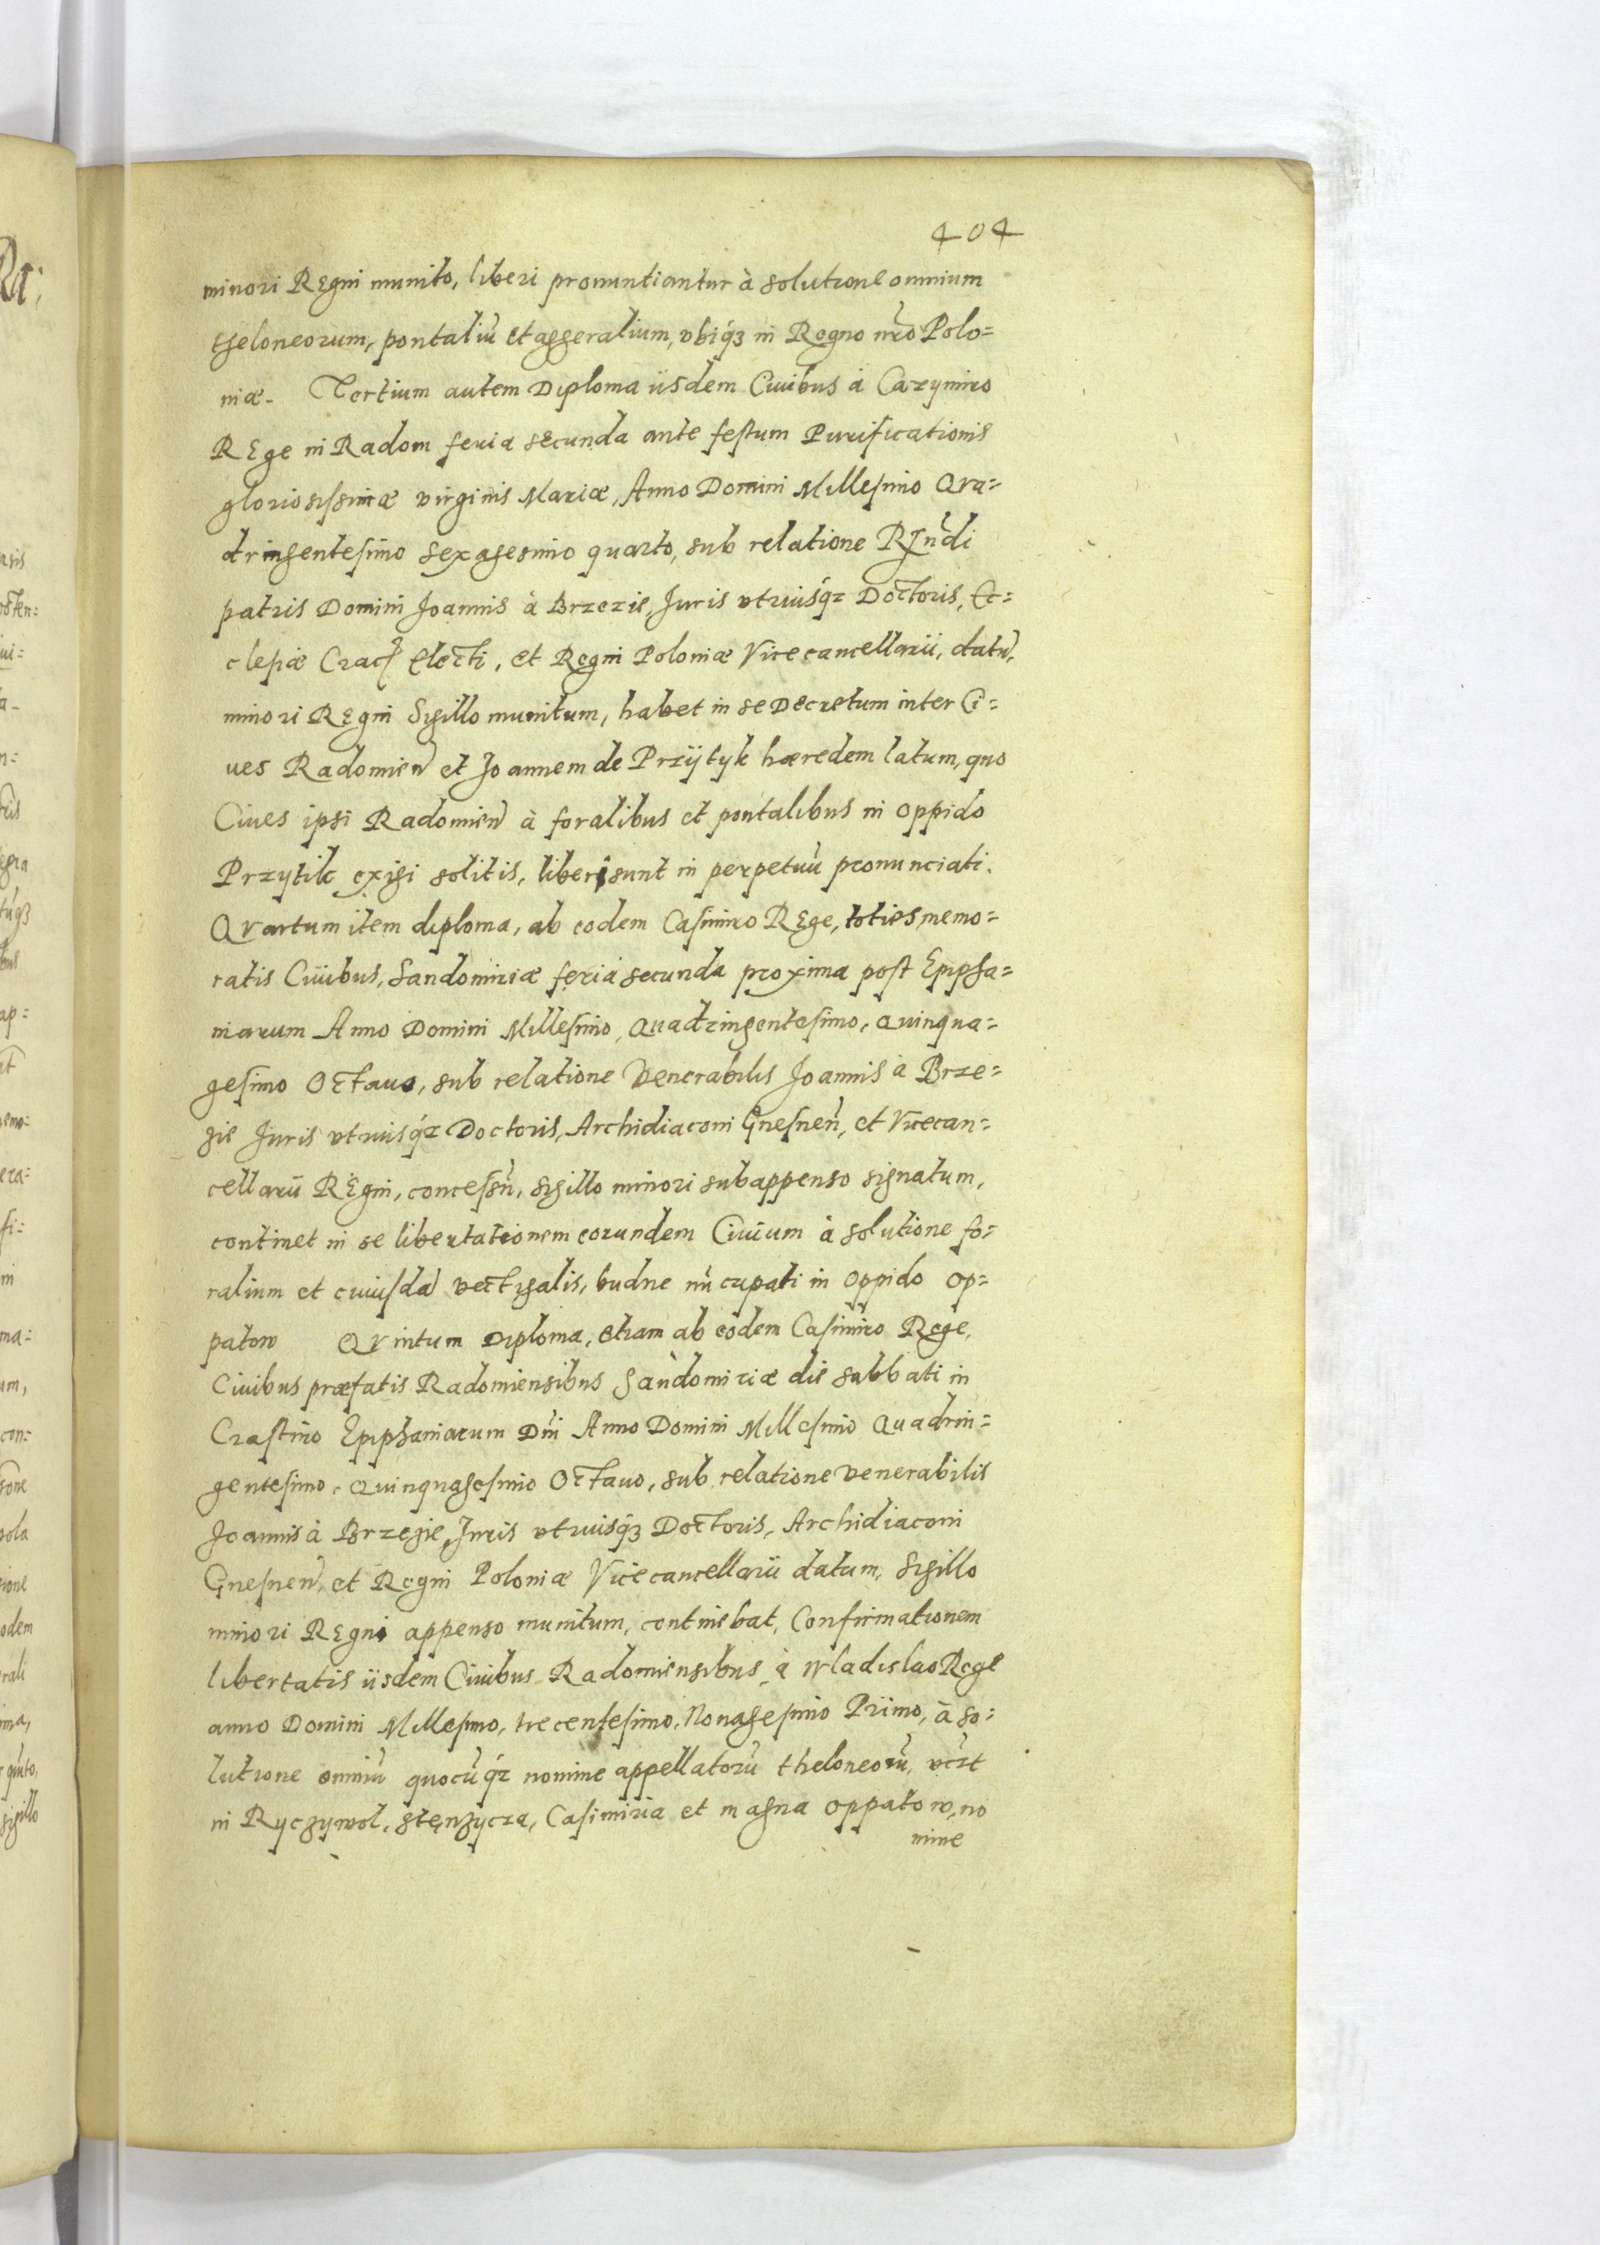 404
minori REgni munito, liberi pronuntiantur à solutione omnium
theloneorum, pontaliū et aggeralium, vbiq́ʒ in Regno nr̃o Polo=
niæ. Tertium autem Diploma iisdem Ciuibus à Cazymiro
REge in Radom feria secunda ante festum Purificationis
gloriosissimæ virginis Mariæ, Anno Domini Millesimo Qua=
dringentesimo sexagesimo quarto, sub relatione Rñdi
patris Domini Joannis à Brzezie, Juris vtriusq́ʒ Doctoris, Ec=
clesiæ Crac̃ Electi, et Regni Poloniæ Vicecancellarii, datũ,
minori REgni Sigillo munitum, habet in se Decretum inter Ci=
ues Radomieñ et Joannem de Przÿtyk hæredem latum, quo
Ciues ipsi Radomieñ à foralibus et pontalibus in oppido
Przytik exigi solitis, liberi sunt in perpetuū pronunciati.
Quartum item diploma, ab eodem Casimiro REge, toties memo=
ratis Ciuibus, Sandomiriæ feria secunda proxima post Epipha=
niarum Anno Domini Millesimo, Quadringentesimo, Quinqua=
gesimo Octauo, sub relatione Venerabilis Joannis à Brze=
zie Juris vtriusq́ʒ Doctoris, Archidiaconi Gnesneñ, et Vicecan=
cellarii REgni, concessũ, sigillo minori subappenso signatum,
continet in se libertationem eorundem Ciuium à solutione fo=
ralium et cuiusdã vectigalis, budne nũcupati in oppido Op=
patow Quintum Diploma, etiam ab eodem Casimiro Rege,
Ciuibus præfatis Radomiensibus Sandomiriæ die sabbati in
Crastino Epiphaniarum Dñi Anno Domini Millesimo Quadrin=
gentesimo, Quinquagesimo Octauo, sub relatione venerabilis
Joannis à Brzezie, Juris vtriusq́ʒ Doctoris, Archidiaconi
Gnesneñ, et Regni Poloniæ Vicecancellarii datum, Sigillo
minori REgni appenso munitum, continebat, Confirmationem
libertatis iisdem Ciuibus Radomiensibus, à Wladislao Rege
anno Domini Millesimo, trecentesimo, Nonagesimo Primo, à so=
lutione omniū quocũq́ʒ nomine appellatorū theloneorū, vc̃zt
in Ryczywol, Stęnzycza, Casimiria et magna oppatow, no
mine